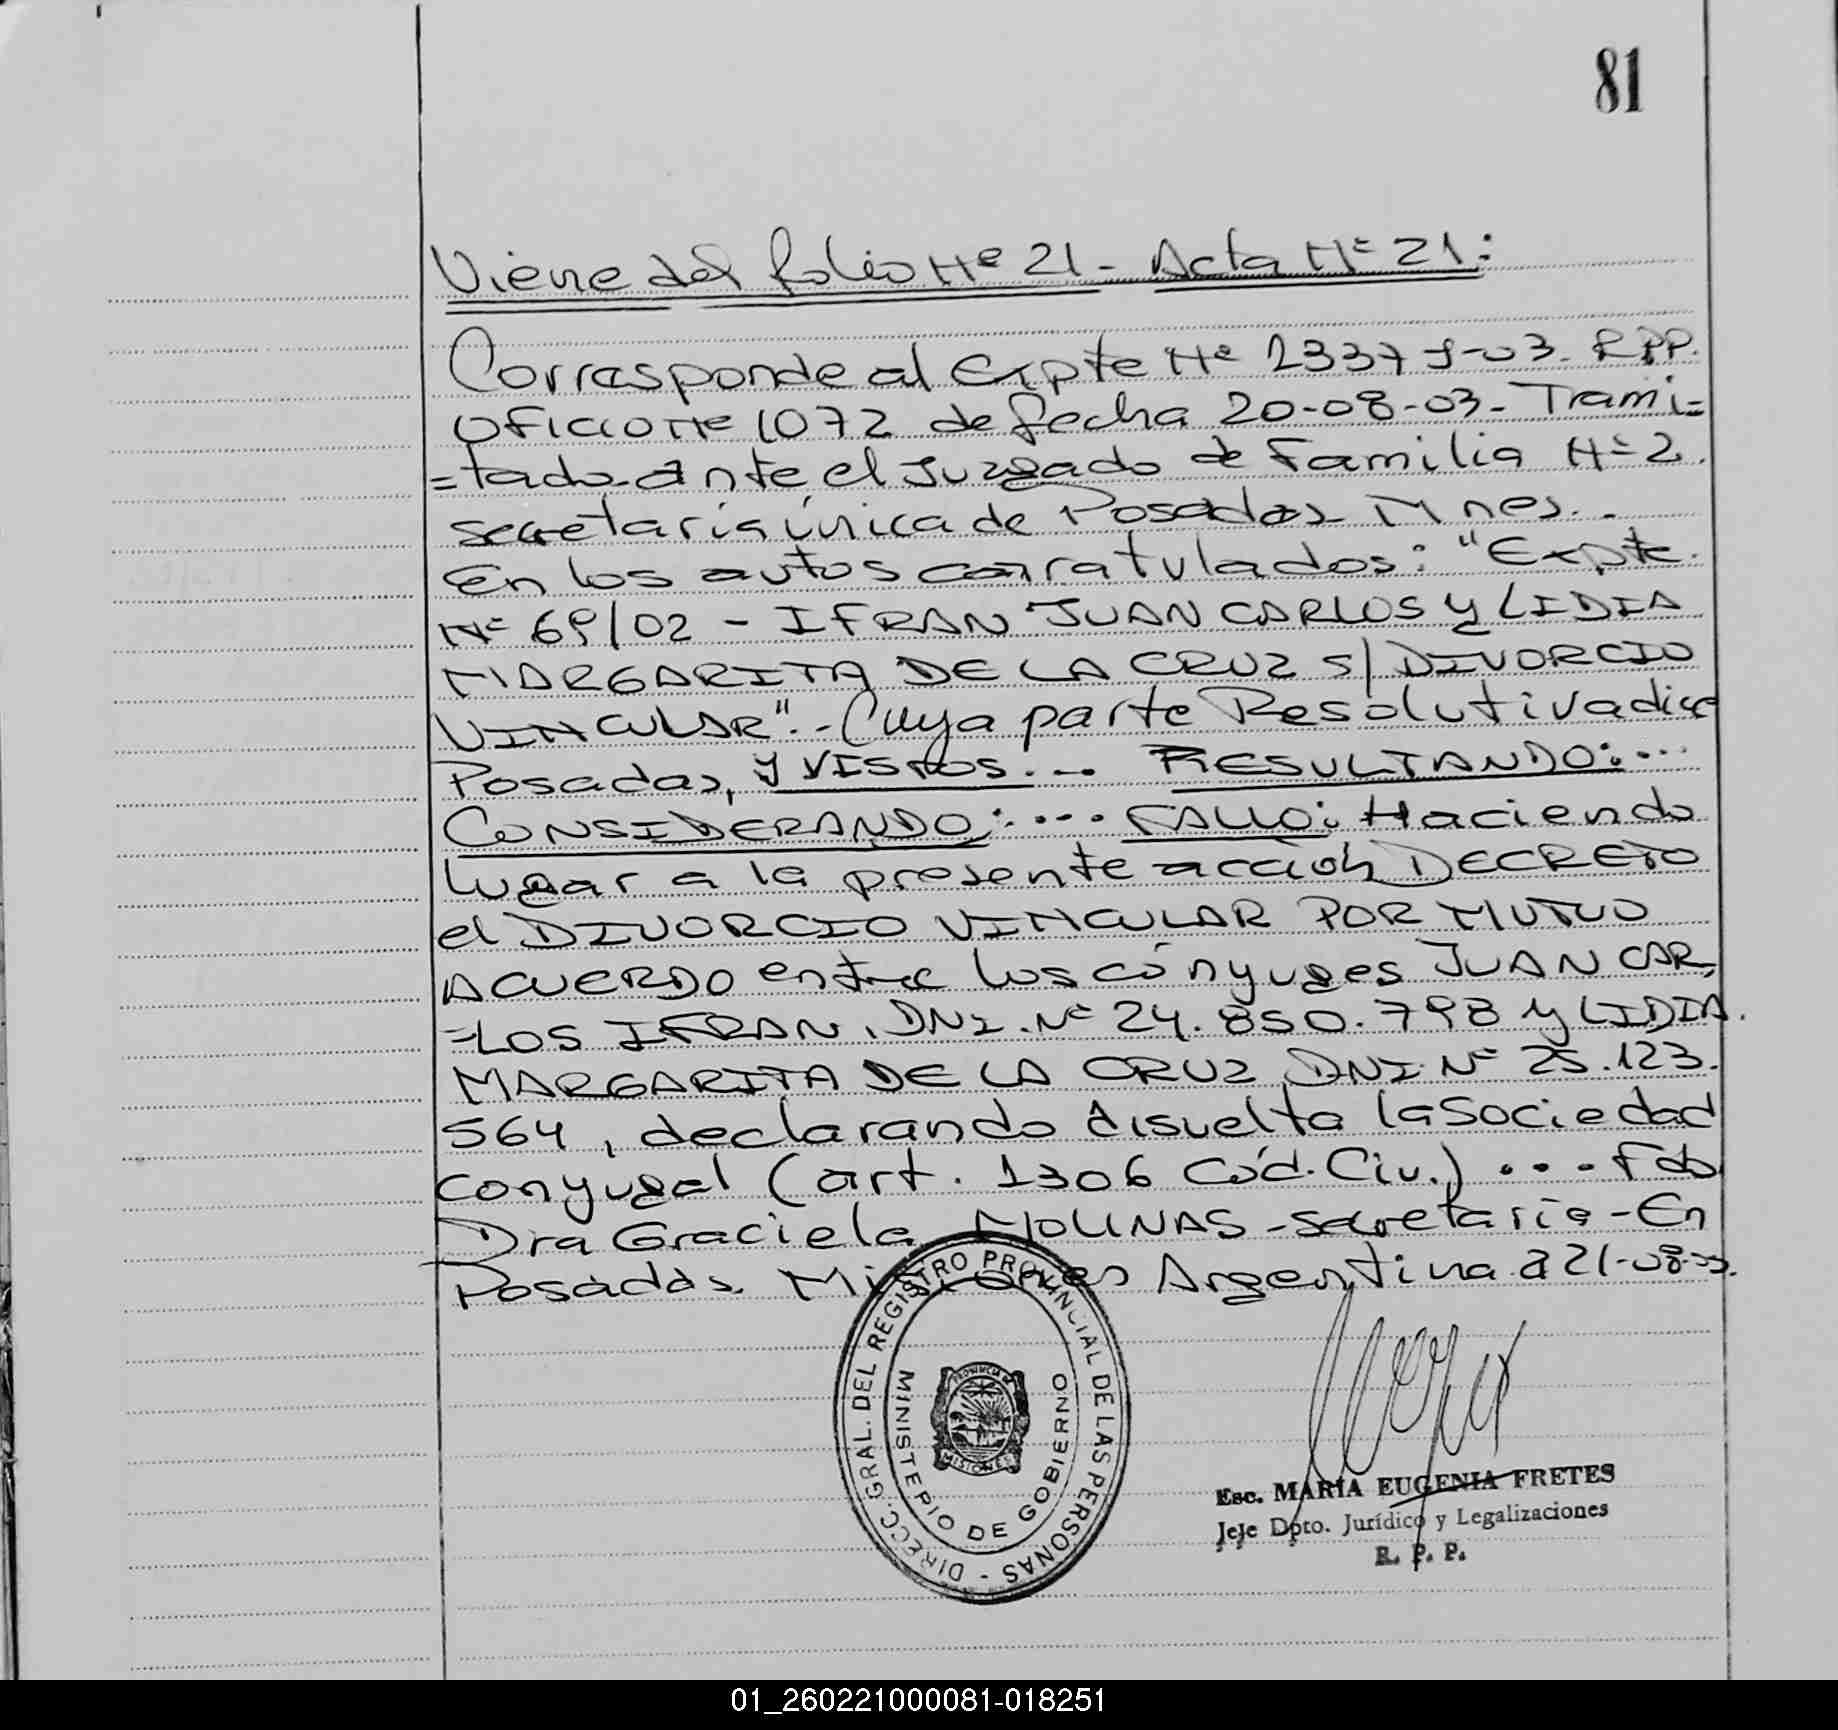 81
Viene del folio Nº 21 - Acta Nº 21:
Corresponde al Expte Nº 23379-03. RPP.
Oficio Nº 1072 de fecha 20-08-03- Trami=
=tado ante el Juzgado de Familia Nº 2.
secretaria única de Posadas Mnes..-
En los autos caratulados: "Expte.
Nº 69/02 - IFRAN JUAN CARLOS y LIDIA
MARGARITA DE LA CRUZ S/ DIVORCIO
VINCULAR".- Cuya parte Resolutiva dice
Posadas, Y VISTOS... RESULTANDO:...
CONSIDERANDO:.... FALLO: Haciendo
lugar a la presente acción DECRETO
el DIVORCIO VINCULAR POR MUTUO
ACUERDO entre los cónyuges JUAN CAR=
=LOS IFRAN, DNI. Nº 24.850.798 y LIDIA
MARGARITA DE LA CRUZ DNI. Nº 25.123.
564, declarando disuelta la Sociedad
conyugal (art. 1306 Cód. Civ.) ... Fdo
Dra Graciela MOLINAS - secretaria - En
Posadas. Misiones Argentina a 21-08-03.
DIRECC. GRAL. DEL REGISTRO PROVINCIAL DE LAS PERSONAS -
MINISTERIO DE GOBIERNO
PROVINCIA DE
MISIONES
Esc. MARÍA EUGENIA FRETES
Jefe Dpto. Jurídico y Legalizaciones
R. P. P.
01_260221000081-018251